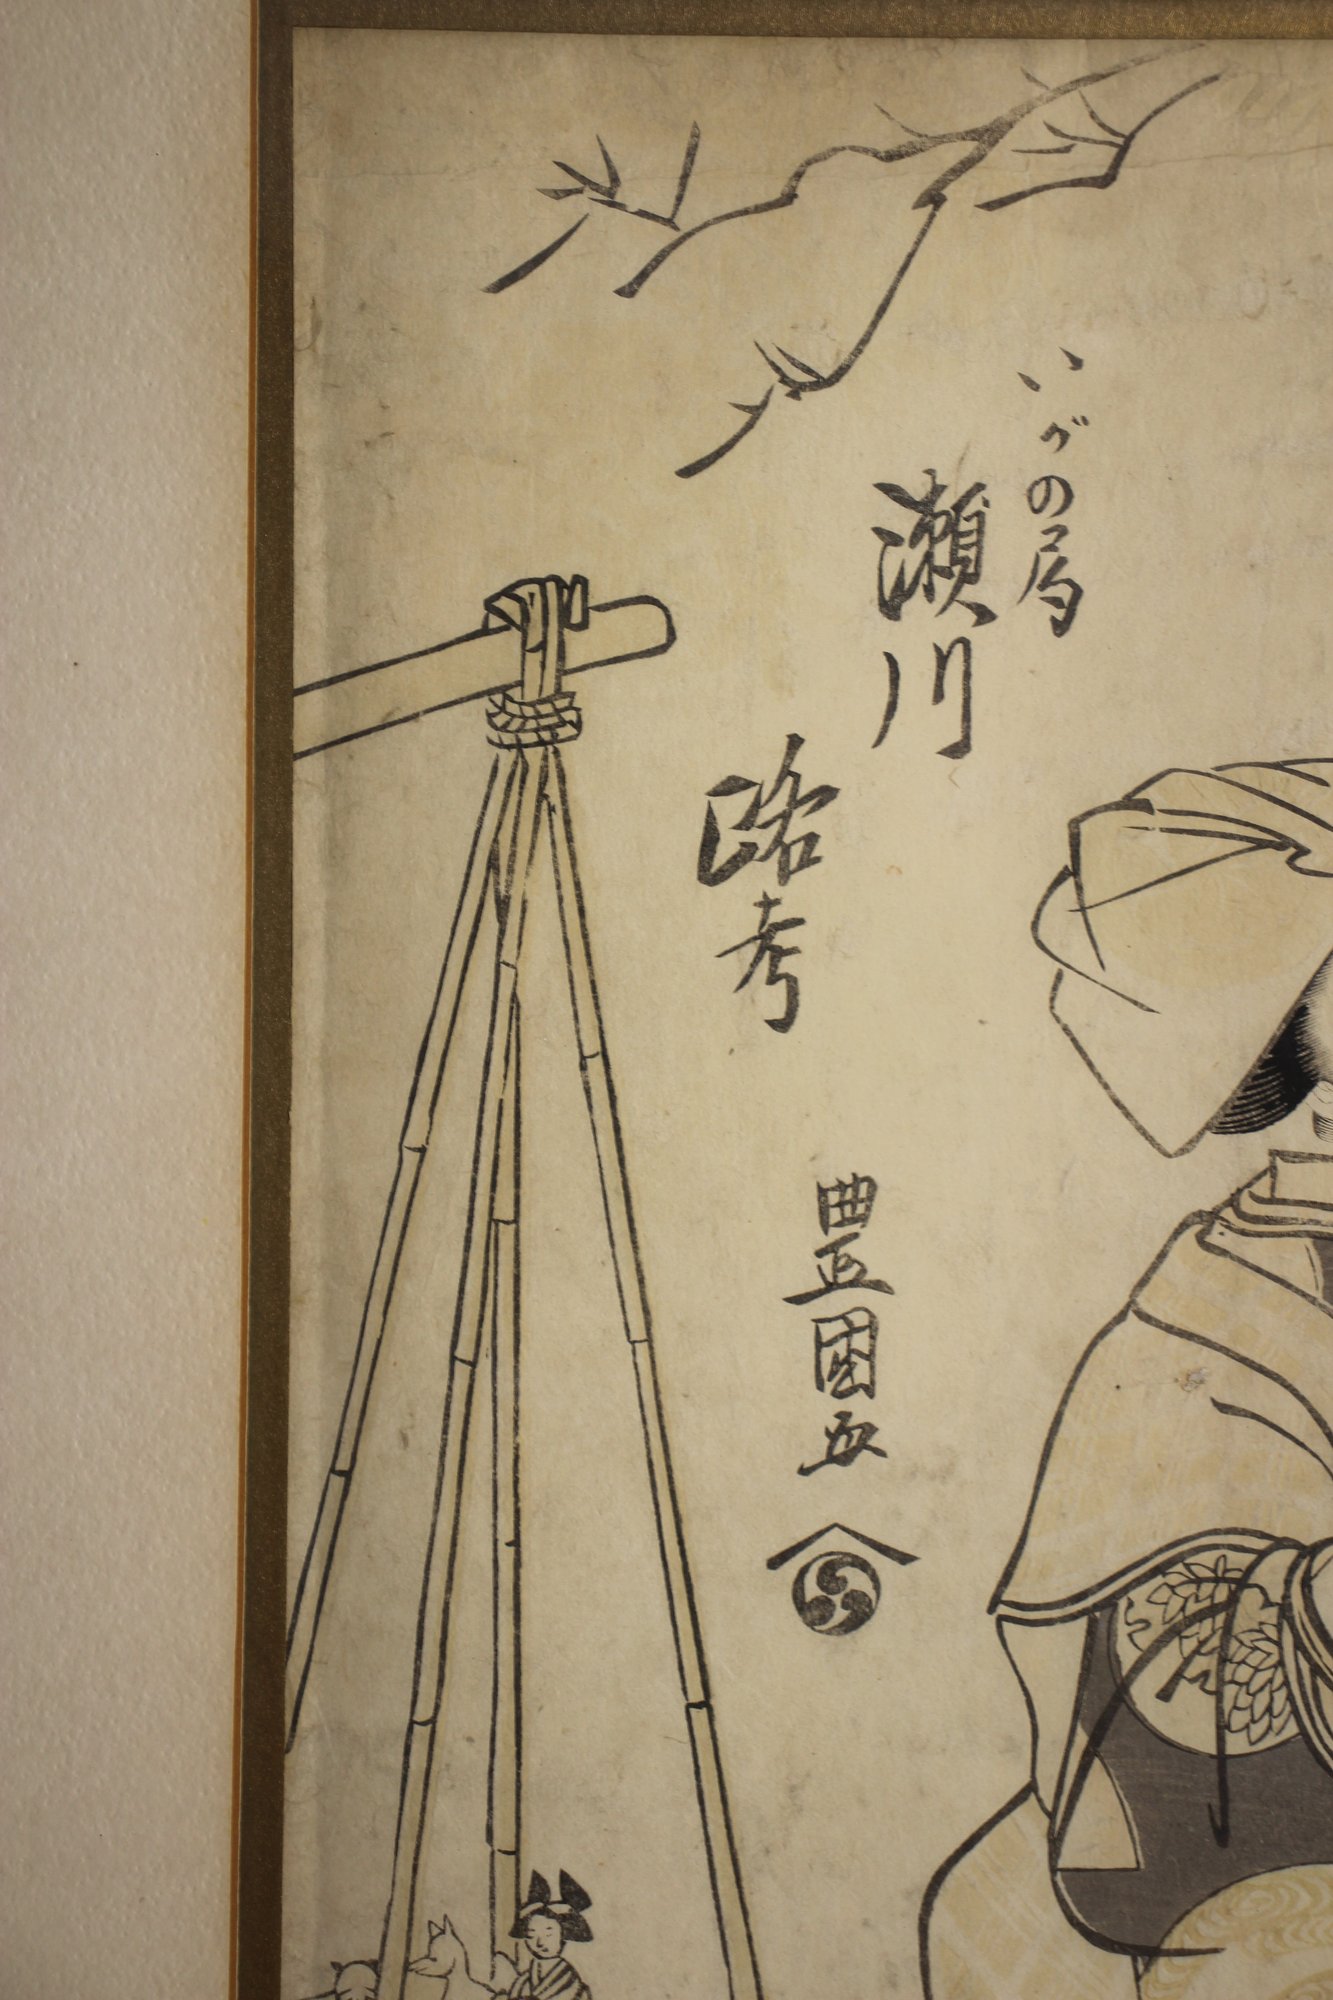 いがの局
瀬川
路考
豊國画